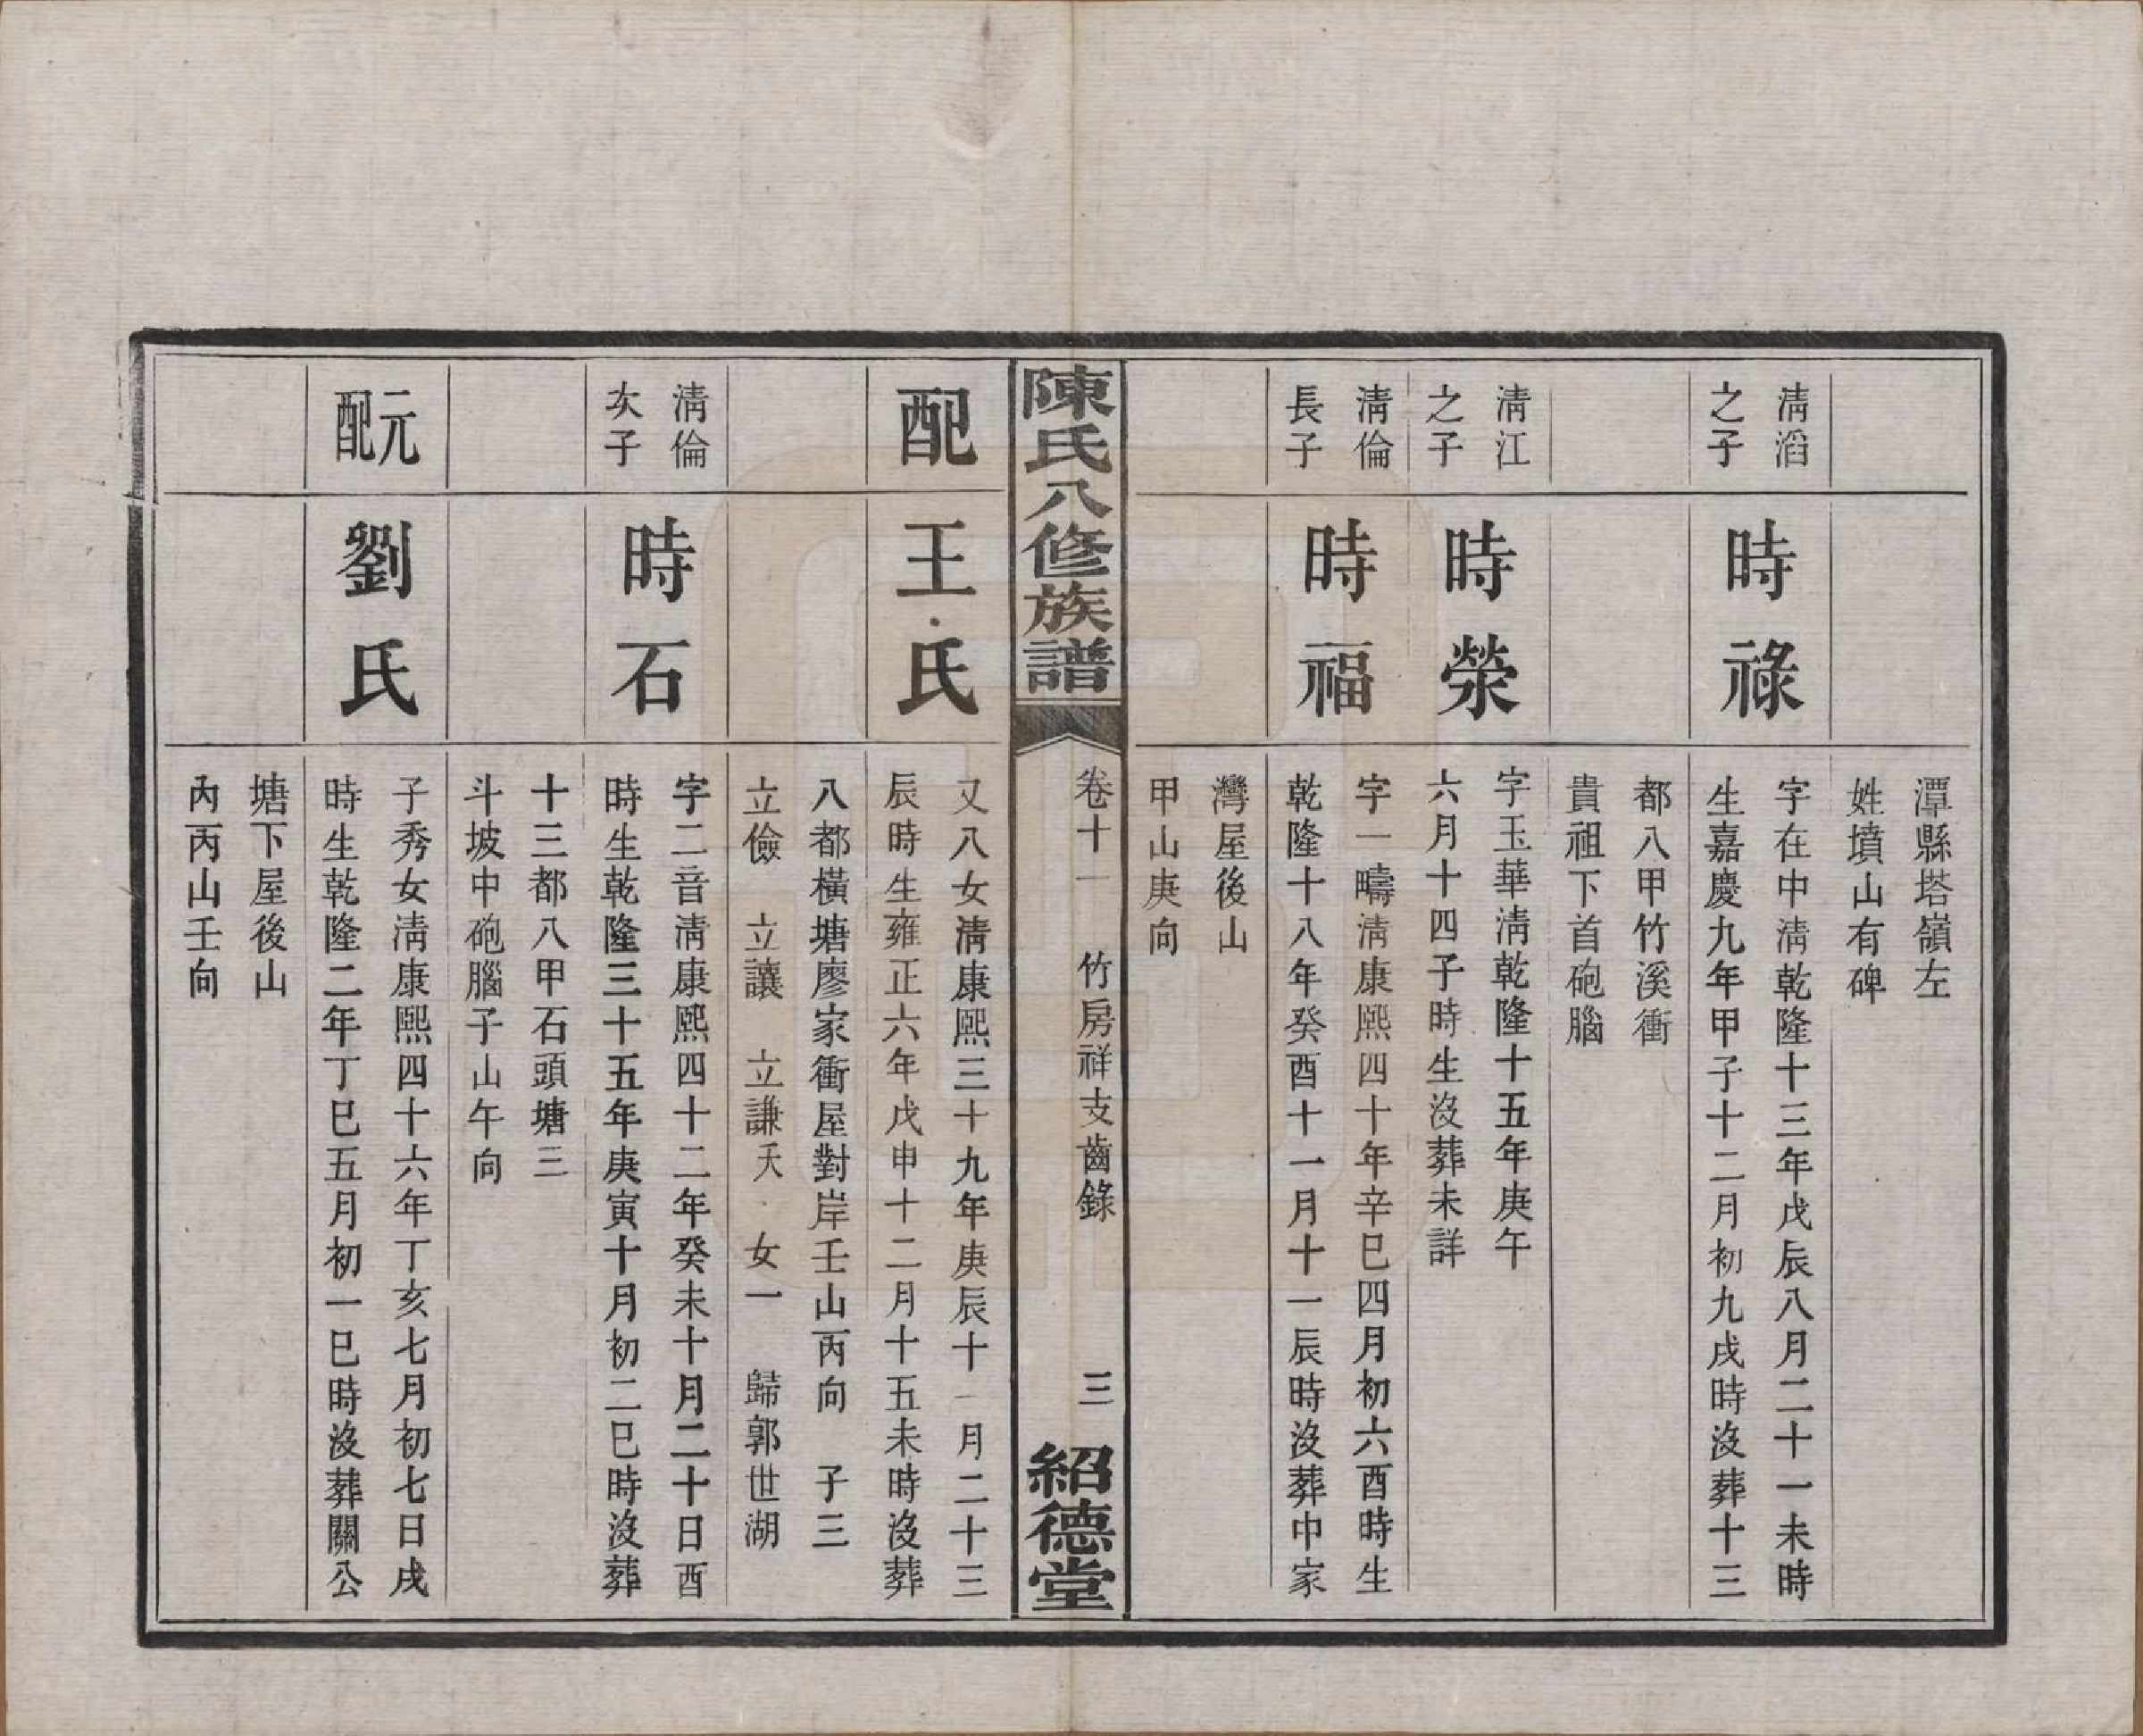 潭縣塔嶺左
姓墳山有碑
清滔
之子
時祿
字在中清乾隆十三年戊辰八月二十一未時
生嘉慶九年甲子十二月初九戌時沒葬十三
都八甲竹溪衝
貴祖下首砲腦
清江
之子
時榮
字玉華清乾隆十五年庚午
六月十四子時生沒葬未詳
清倫
長子
時福
字一疇清康熙四十年辛巳四月初六酉時生
乾隆十八年癸酉十一月十一辰時沒葬中家
灣屋後山
甲山庚向
陳氏八修族譜
卷十一 竹房祥支齒錄
三
紹德堂
配
王氏
又八女清康熙三十九年庚辰十一月二十三
辰時生雍正六年戊申十二月十五未時沒葬
八都橫塘廖家衝屋對岸壬山丙向 子三
立儉 立讓 立謙夭 女一 歸郭世湖
清倫
次子
時石
字二音清康熙四十二年癸未十月二十日酉
時生乾隆三十五年庚寅十月初二巳時沒葬
十三都八甲石頭塘三
斗坡中砲腦子山午向
元配
劉氏
子秀女清康熙四十六年丁亥七月初七日戌
時生乾隆二年丁巳五月初一巳時沒葬關公
塘下屋後山
內丙山壬向